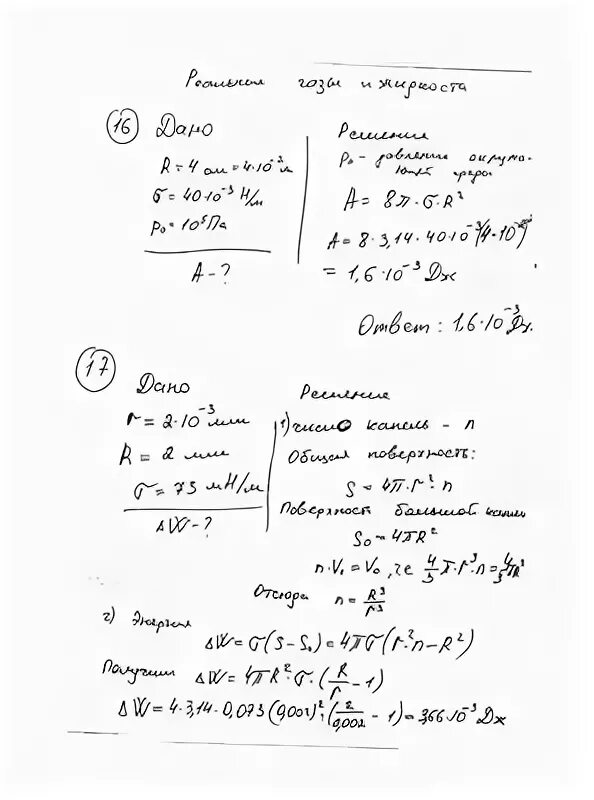 Реальные газы и жидкости
16 Дано
R = 4 см = 4·10⁻² м
σ = 40·10⁻³ Н/м
p₀ = 10⁵ Па
A - ?
Решение
p₀ - давление окружа-
ющей среды
A = 8π·σ·R²
A = 8·3,14·40·10⁻³(4·10⁻²)²
= 1,6·10⁻³ Дж
Ответ: 1,6·10⁻³ Дж.
17
Дано
r = 2·10⁻³ мм
R = 2 мм
σ = 73 мН/м
ΔW - ?
Решение
1) число капель - n
Общая поверхность:
S = 4π·r²·n
Поверхность большой капли
S₀ = 4πR²
n·V₁ = V₀, где 4/3 π·r³·n = 4/3 πR³
Отсюда n = R³/r³
2) Энергия
ΔW = σ(S - S₀) = 4πσ(r²n - R²)
Получим ΔW = 4πR²·σ·(R/r - 1)
ΔW = 4·3,14·0,073(0,002)²·(2/0,002 - 1) = 3,66·10⁻³ Дж